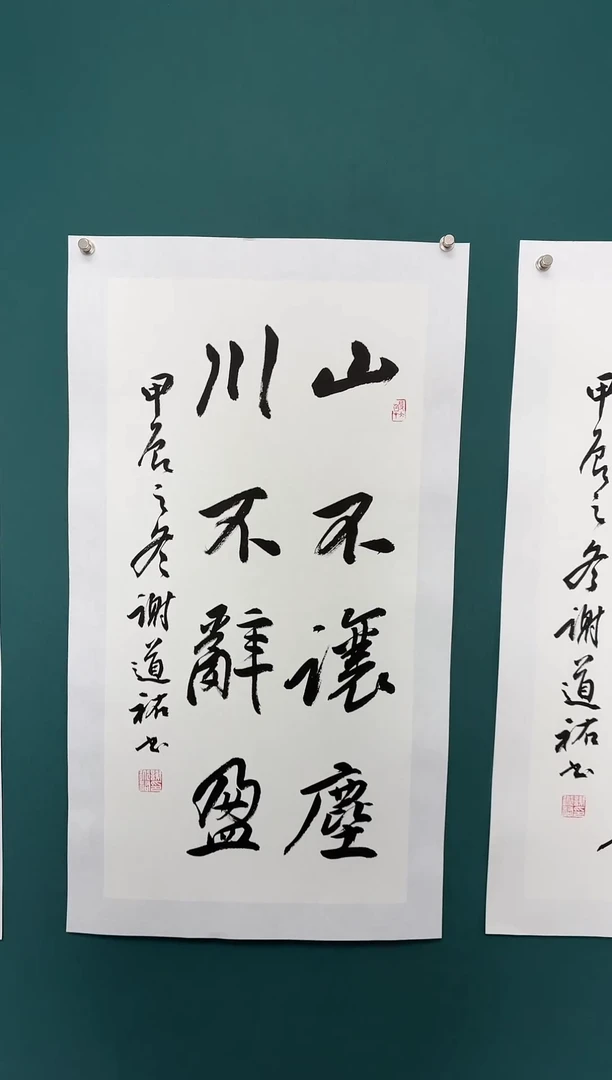 山不讓塵
川不辭盈
甲辰之冬谢道祐书
甲辰之冬谢道祐书